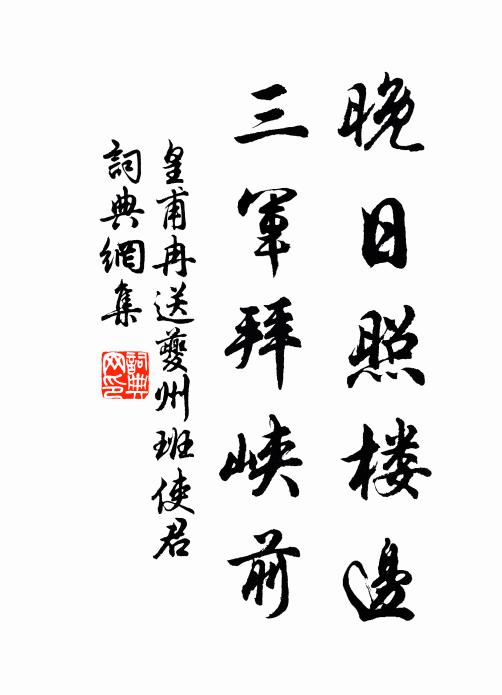 晚日照楼邊
三軍拜峽前
皇甫冉送夔州班使君
詞典網集
詞典網印